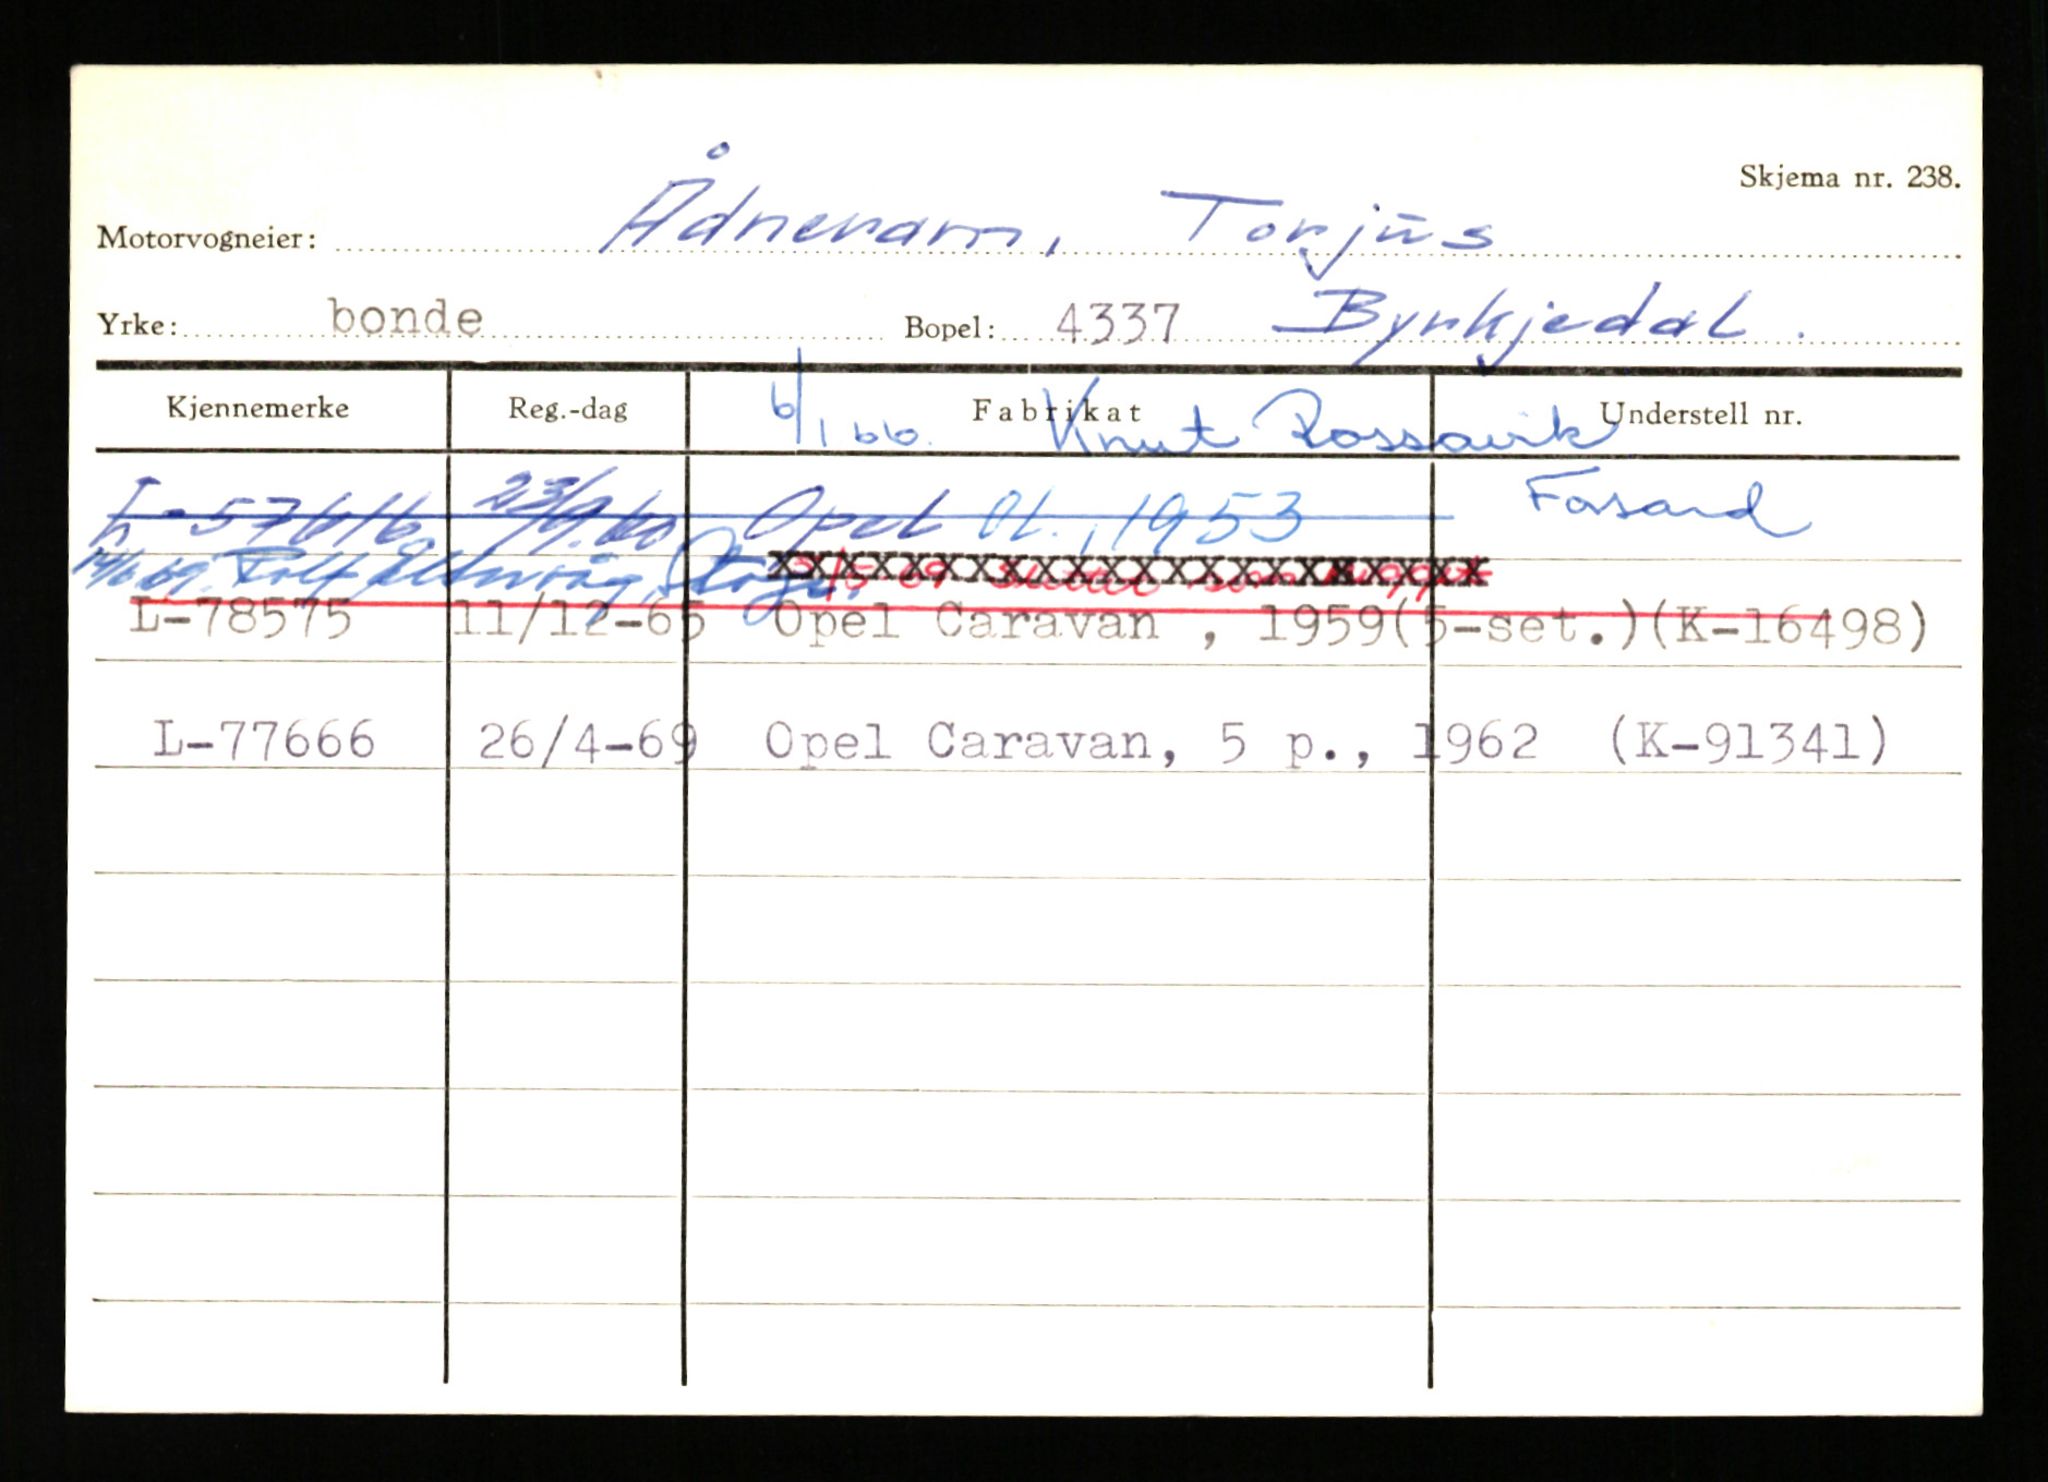 Skjema nr. 238.
Motorvogneier: Ådneram, Torjus
Yrke: bonde Bopel: 4337 Byrkjedal.
Kjennemerke Reg.-dag Fabrikat Understell nr.
6/1 66. Knut Rossavik
Forsand
L-57616 23/9.60 Opel Ol., 1953
14/6.69. Rolf
L-78575 11/12-65 Opel Caravan , 1959(5-set.)(K-16498)
L-77666 26/4-69 Opel Caravan, 5 p., 1962 (K-91341)